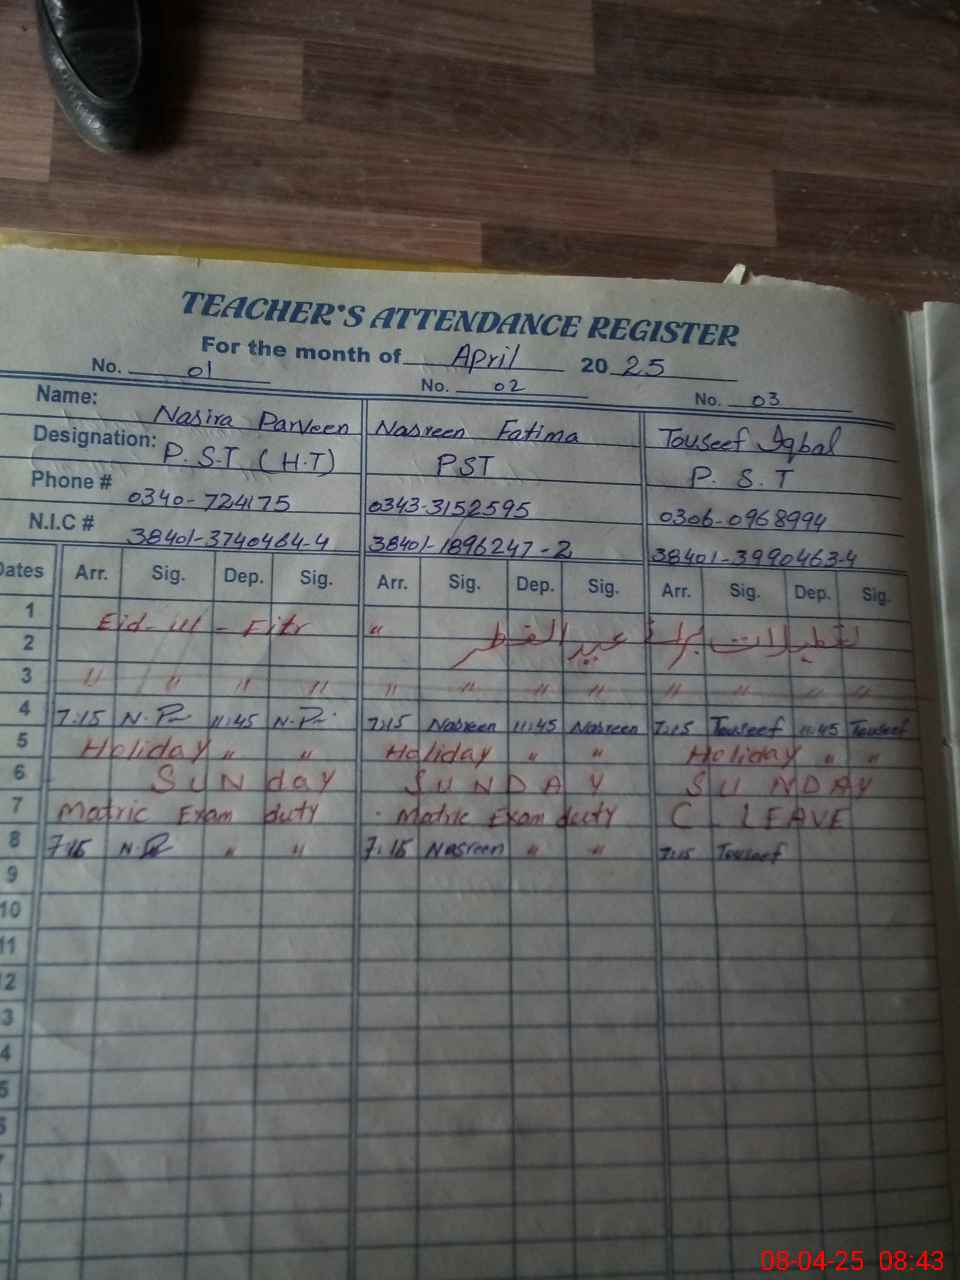 TEACHER'S ATTENDANCE REGISTER
For the month of April 20 25
No. 01 No. 02 No. 03
Name: Nasira Parveen Nasreen Fatima Touseef Iqbal
Designation: P.S.T (H.T) PST P. S. T
Phone # 0340-724175 0343-3152595 0306-0968994
N.I.C # 38401-3740464-4 38401-1896247-2 38401-3990463-4
Dates Arr. Sig. Dep. Sig. Arr. Sig. Dep. Sig. Arr. Sig. Dep. Sig.
1 Eid-ul-Fitr " تعطیلات برائے عید الفطر
2
3 " " " " " " " " " " " "
4 7:15 N.P 11:45 N.P 7:15 Nasreen 11:45 Nasreen 7:15 Touseef 11:45 Touseef
5 Holiday " " Holiday " " Holiday " "
6 SUNday SUNDAY SUNDAY
7 Matric Exam duty Matric Exam duty C LEAVE
8 7:15 N.P " " 7:15 Nasreen " " 7:15 Touseef
9
10
11
2
3
4
5
5
08-04-25 08:43